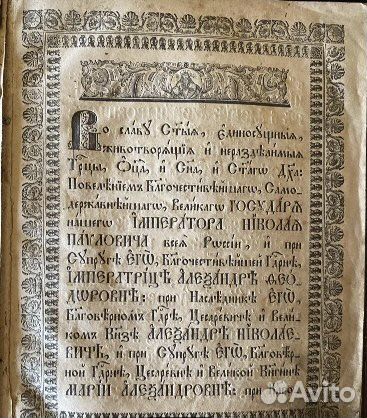 Во славу Ст҃ыѧ, Єдиносущныѧ,
Животворѧщїѧ и нераздѣлныѧ
Трⷪ҇цы, Ѻц҃а, и Сн҃а, и Ст҃агѡ Дх҃а:
Повелѣнїемъ Бл҃гочестивѣйшагѡ, Само-
державнѣйшагѡ, Великагѡ ГОСУДАРѦ
нашегѡ ІМПЕРАТОРА НІКОЛАѦ
ПАVЛОВИЧА всеѧ Рѡссїи, и при
Супругѣ ЄГѠ, Бл҃гочестивѣйшей Гдⷭ҇рнѣ,
ІМПЕРАТРИЦѢ АЛЕѮАНДРѢ ѲЕО-
ДѠРОВНѢ: при Наслѣдникѣ ЄГѠ,
Бл҃говѣрномъ Гдⷭ҇рѣ, Цесаревичѣ и Вели-
комъ Кнѧзѣ АЛЕѮАНДРѢ НІКОЛАЕ-
ВИЧѢ, и при Супругѣ ЄГѠ, Бл҃говѣр-
ной Гдⷭ҇рнѣ, Цесаревнѣ и Великой Кнѧгинѣ
МАРІИ АЛЕѮАНДРОВНѢ: при
Avito